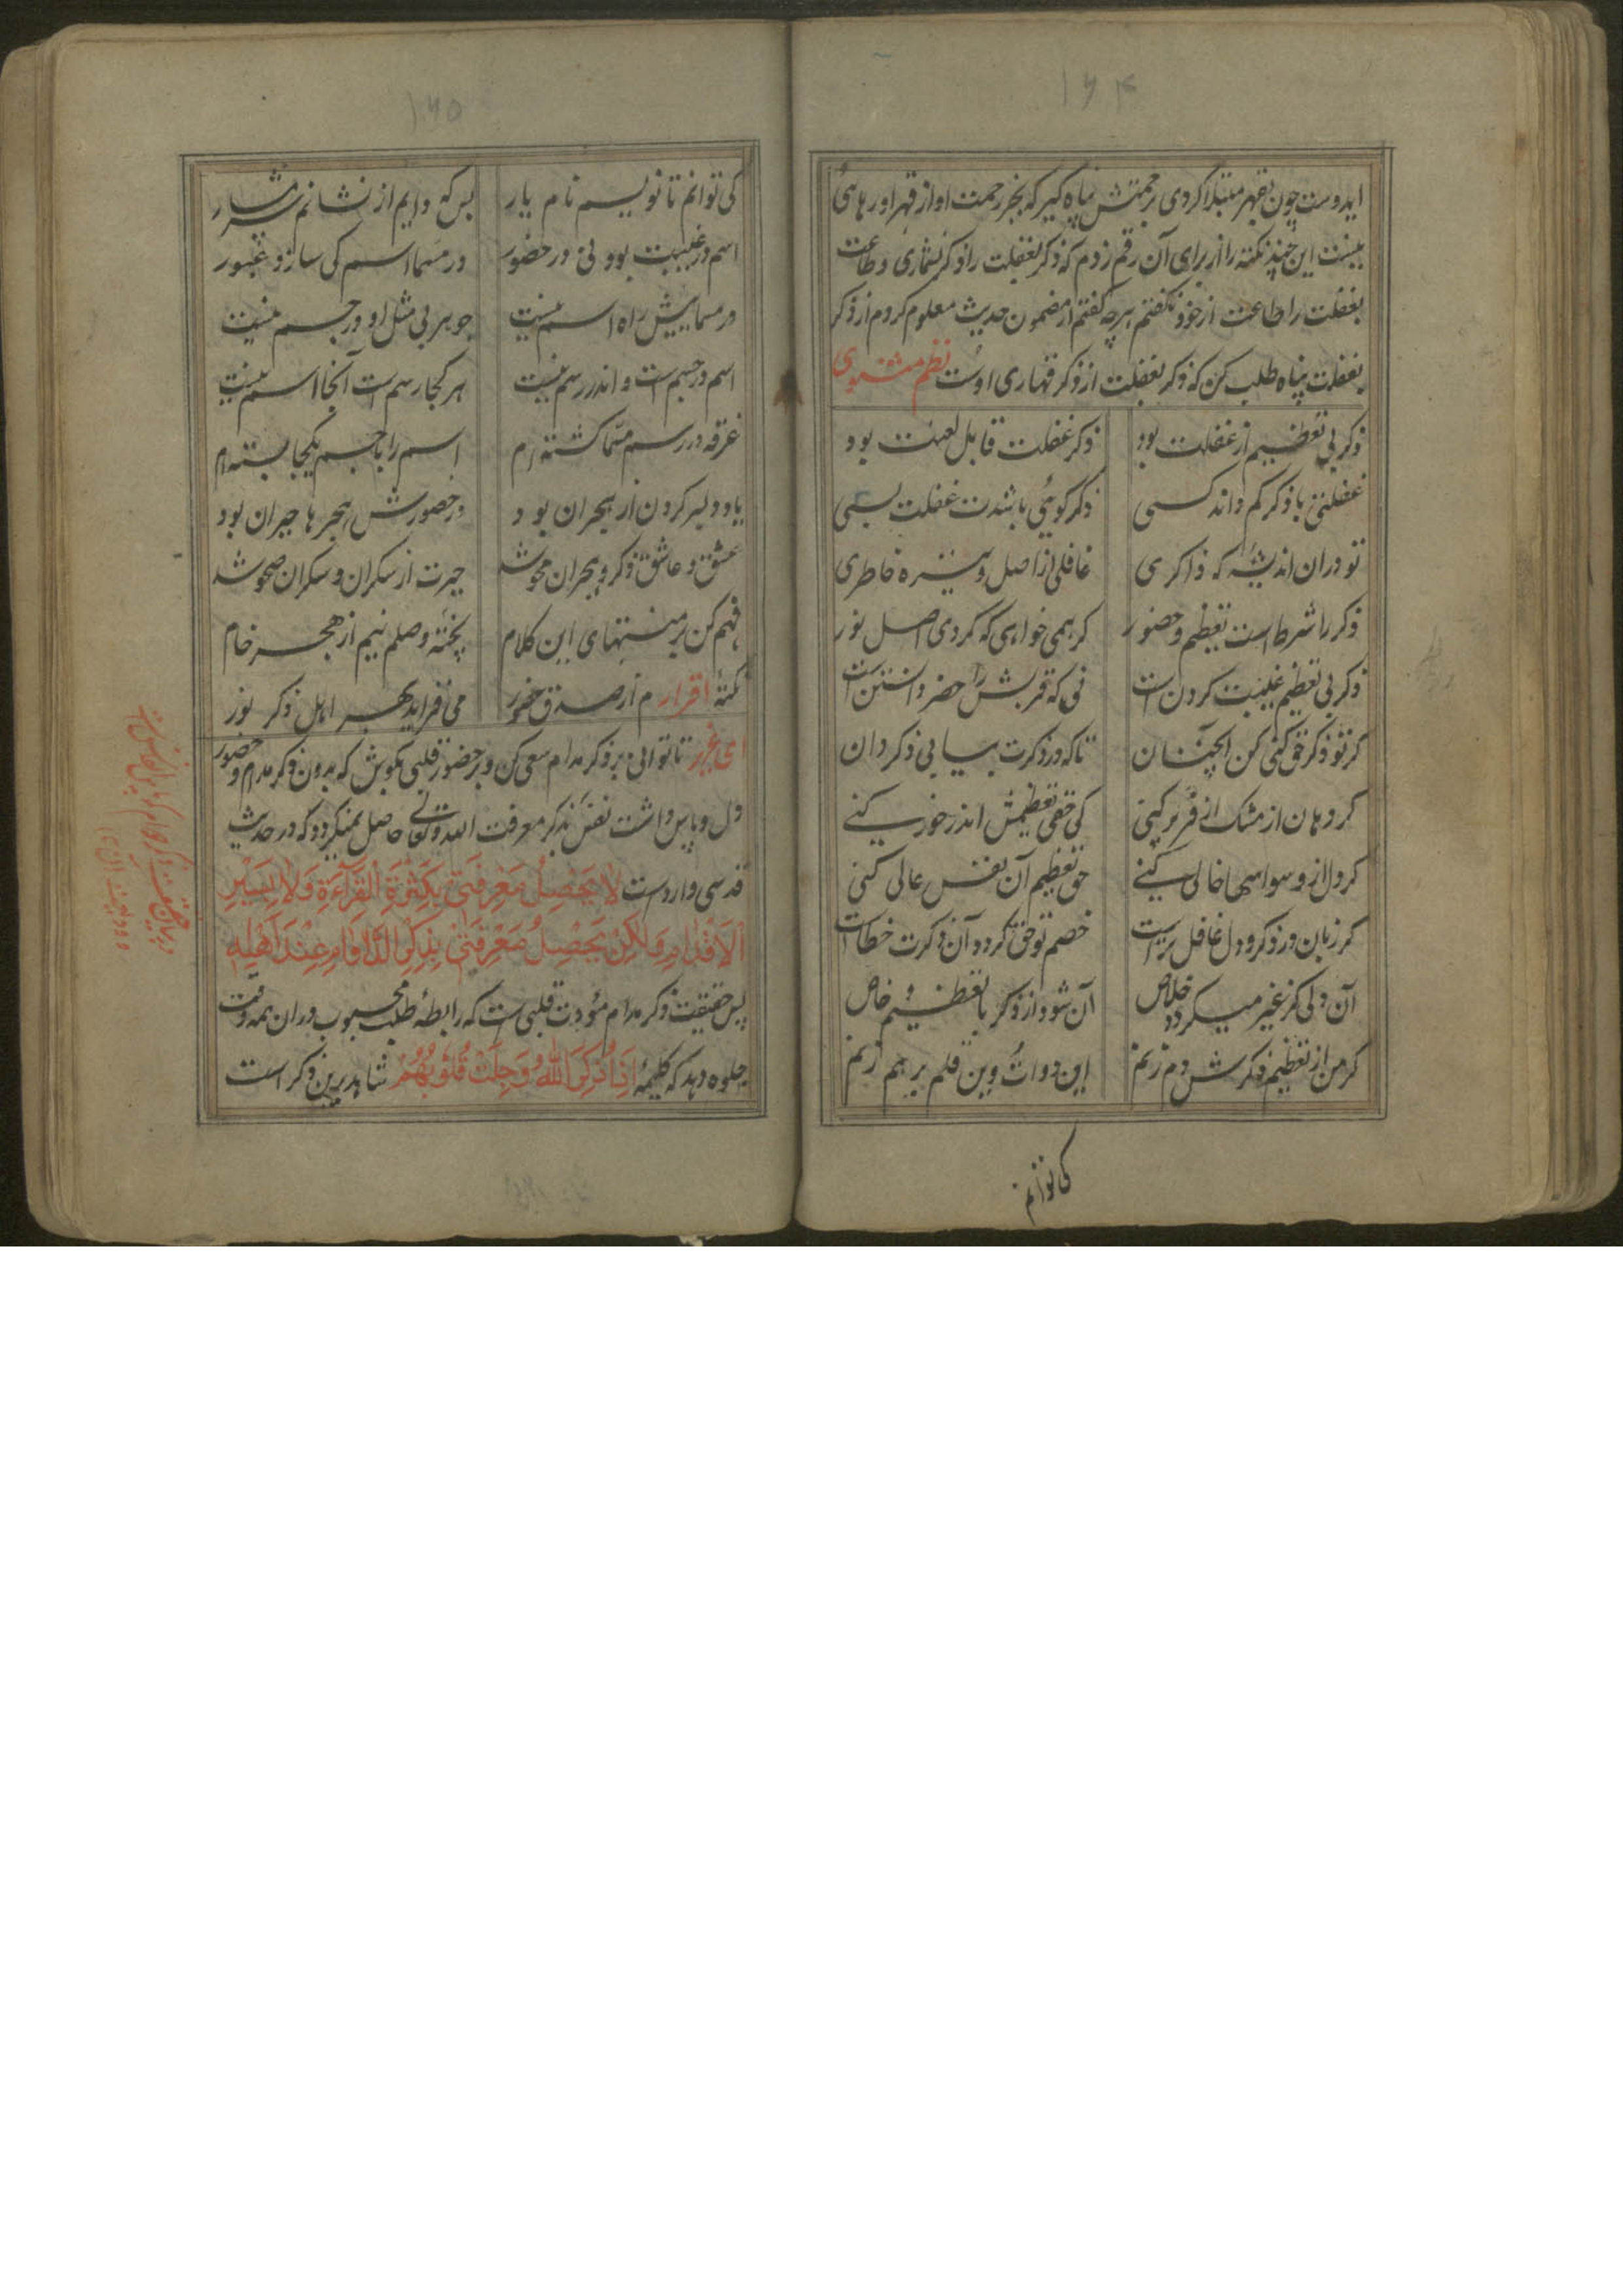 ۱۶۴
ایدوست چون بقهر مبتلا کردی برحمتش پناه کیر که بجز رحمت او از قهر او رهائی
نیست این چند نکته را از برای آن رقم زدم که ذکر بغفلت را ذکر نشماری و طاعت
بغفلت را طاعت از خود نکفتم هرچه کفتم از مضمون حدیث معلوم کردم از ذکر
بغفلت پناه طلب کن که ذکر بغفلت از ذکر قهاری اوست نظم مثنوی
ذکر بی تعظیم از غفلت بود ذکر غفلت قابل لعنت بود
غفلتی با ذکر کم داند کسی ذکر کوئی باشدت غفلت بسی
تو دران اندیشۀ که ذاکری غافلی از اصل و تیره خاطری
ذکر را شرط است تعظیم و حضور کر همی خواهی که کردی اصل نور
ذکر بی تعظیم غیبت کردن است نی که قربش را حضر دانستن است
کر تو ذکر حق کنی کن آنچنان تا که در ذکرت بیابی ذکر دان
کر دهان از مشک اذفر پر کنی کی حق تعظیمش اندر خور کنی
کر دل از وسواسها خالی کنی حق تعظیم آن نفس عالی کنی
کر زبان در ذکر و دل غافل تراست خصم تو حق کردد آن ذکرت خطاست
آن دلی کز غیر میکردد خلاص آن شود از ذکر با تعظیم خاص
کر من از تعظیم ذکرش دم زنم این دوات وین قلم برهم زنم
کی توانم
۱۶۵
کی توانم تا نویسم نام یار بس که دایم از نشانم شرمسار
اسم در غیبت بود نی در حضور در مسما اسم کی سازد عبور
در مسمایش راه اسم نیست جوهر بی مثل او در جسم نیست
اسم در جسم است و اندر رسم نیست هر کجا رسم است آنجا اسم نیست
غرقه در رسم مسمّا کشته ام اسم را با جسم یکجا بسته ام
یاد دلبر کردن از هجران بود در حضورش هجرها حیران بود
عشق و عاشق ذکر و هجران محو شد حیرت از سکران و سکران صحو شد
فهم کن بر منتهای این کلام پختۀ وصلم نیم از هجر خام
نکتۀ اقرارم از صدق حضور می فزاید بهر اهل ذکر نور
ای عزیز تا توانی بر ذکر مدام سعی کن و بر حضور قلبی بکوش که بدون ذکر مدام و حضور
دل و پاس داشت نفس بذکر معرفت الله تعالی حاصل نمیکردد که در حدیث
قدسی وارد است لَا یَحْصِلُ مَعْرِفَتِیْ بِکَثْرَةِ الْقِرَآءَةِ وَلَا بِسَیْرِ
الْاَقْدَامِ وَلٰکِنْ یَحْصِلُ مَعْرِفَتِیْ بِذِکْرِ الدَّوَامِ عِنْدَ اَهْلِهِ
پس حقیقت ذکر مدام مؤدت قلبی است که رابطۀ طلب محبوب دران همه وقت
جلوه دهد که کلیمۀ اِذَا ذُکِرَ اللهُ وَجِلَتْ قُلُوْبُهُمْ شاهد برین ذکر است